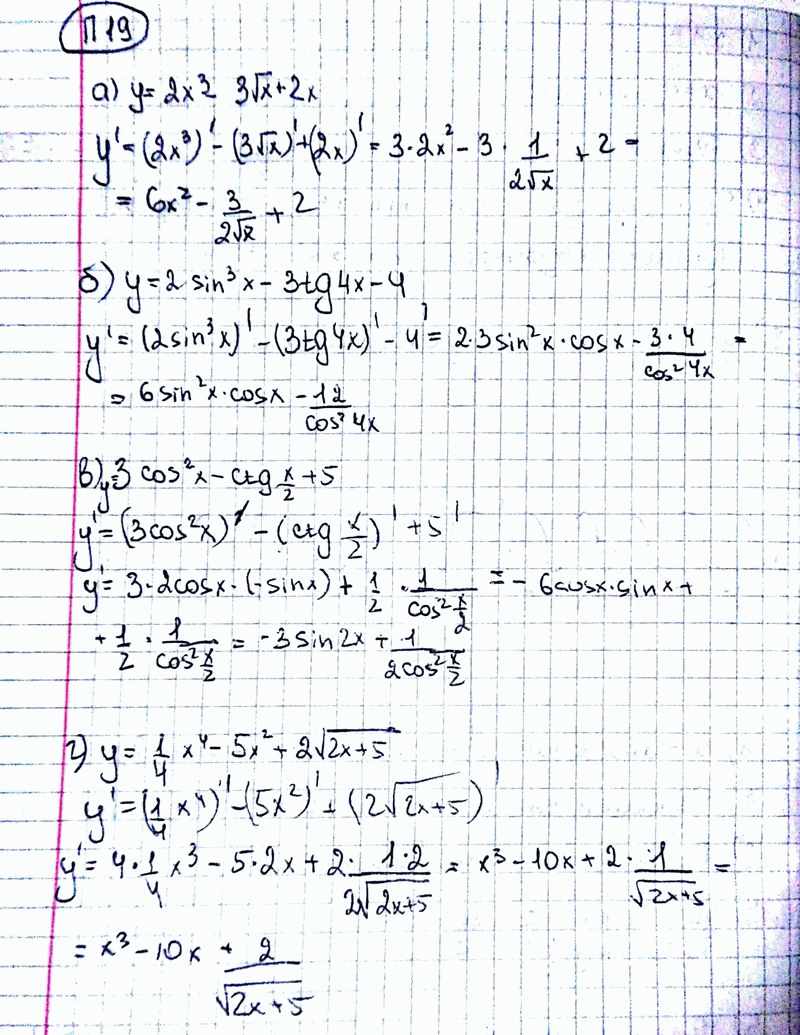 П19
а) y = 2x³ - 3√x + 2x
y' = (2x³)' - (3√x)' + (2x)' = 3·2x² - 3 · 1/(2√x) + 2 =
= 6x² - 3/(2√x) + 2
б) y = 2 sin³x - 3tg4x - 4
y' = (2sin³x)' - (3tg4x)' - 4' = 2·3sin²x·cosx - (3·4)/(cos²4x) =
= 6sin²x·cosx - 12/(cos²4x)
в) y=3 cos²x - ctg x/2 + 5
y' = (3cos²x)' - (ctg x/2)' + 5'
y' = 3·2cosx·(-sinx) + 1/2 · 1/(cos² x/2) = - 6cosx·sinx +
+ 1/2 · 1/(cos² x/2) = -3sin2x + 1/(2cos² x/2)
г) y = 1/4 x⁴ - 5x² + 2√(2x+5)
y' = (1/4 x⁴)' - (5x²)' + (2√(2x+5))'
y' = 4·1/4 x³ - 5·2x + 2· (1·2)/(2√(2x+5)) = x³ - 10x + 2 · 1/√(2x+5) =
= x³ - 10x + 2/√(2x+5)